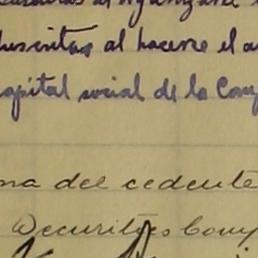 al organizarse
suscritas al hacerse el a
capital social de la Com
ma del cedente
Securities Comp